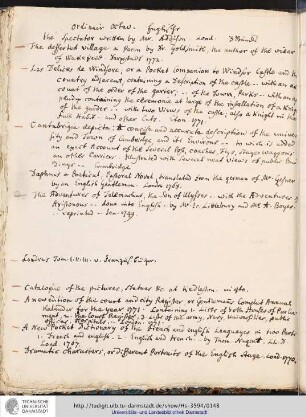 ordinair octav.
the Spectator written by Mr. Addison Lond. 8 Bände
The deserted village a Poem by Dr Goldsmith, the author of the vicar of Wakefield. 1772.
Les Delices de Windsore, or a Pocket Companion to Windsor Castle and the
country adjacent, containing a Description of the castle -- with an ac-
count of the order of the garter; -- of the Town, Parks -- with an
pendix containing the ceremony at large of the installation of a Knight
of the garter. -- with two Views of the castle; also a Knight in his
full Habit - and other Cuts. Eton 1771.
Cantabrigia depicta. A concise and accurate description of the univer-
sity and Town of Cambridge and its Environs -- to which is added
an exact Account of the several Posts, coaches, Flys, Stage waggons,
an other Carriers. Illustrated with several neat views of public
Cambridge
Daphnis a Poetical, Pastoral Novel translated from the german of Mr. Gesner
by an English gentleman. London 1768.
The Adventures of Telemachus, the Son of Ulysses. with the Adventures of
Aristonous: done into English by Mr. Littlebury and Mr. A. Boyer.
reprinted
Londres Tom. I. II. III.
Catalogue of the pictures, statues &c at Kedleston. in 4to.
A new edition of the court and City Register or Gentlemans Complet Annual
Kalendar for the year 1771. Containing 1. Lists of both Houses of Parlia-
ment, 2. the Court Register, 3. Lists of the army, Navy, Universities, public
offices, Hospitals. -- London. 1771.
A New Pocket Dictionary of the French and english Languages in two Parts
1. French and english. 2. English and french. by Thom. Nugent. LL.D.
Lond. 1767.
Dramatic Characters, or Different Portraits of the English Stage. Lond. 1770.
TECHNISCHE
UNIVERSITÄT
DARMSTADT
http://tudigit.ulb.tu-darmstadt.de/show/Hs-3594/0148
Universitäts- und Landesbibliothek Darmstadt